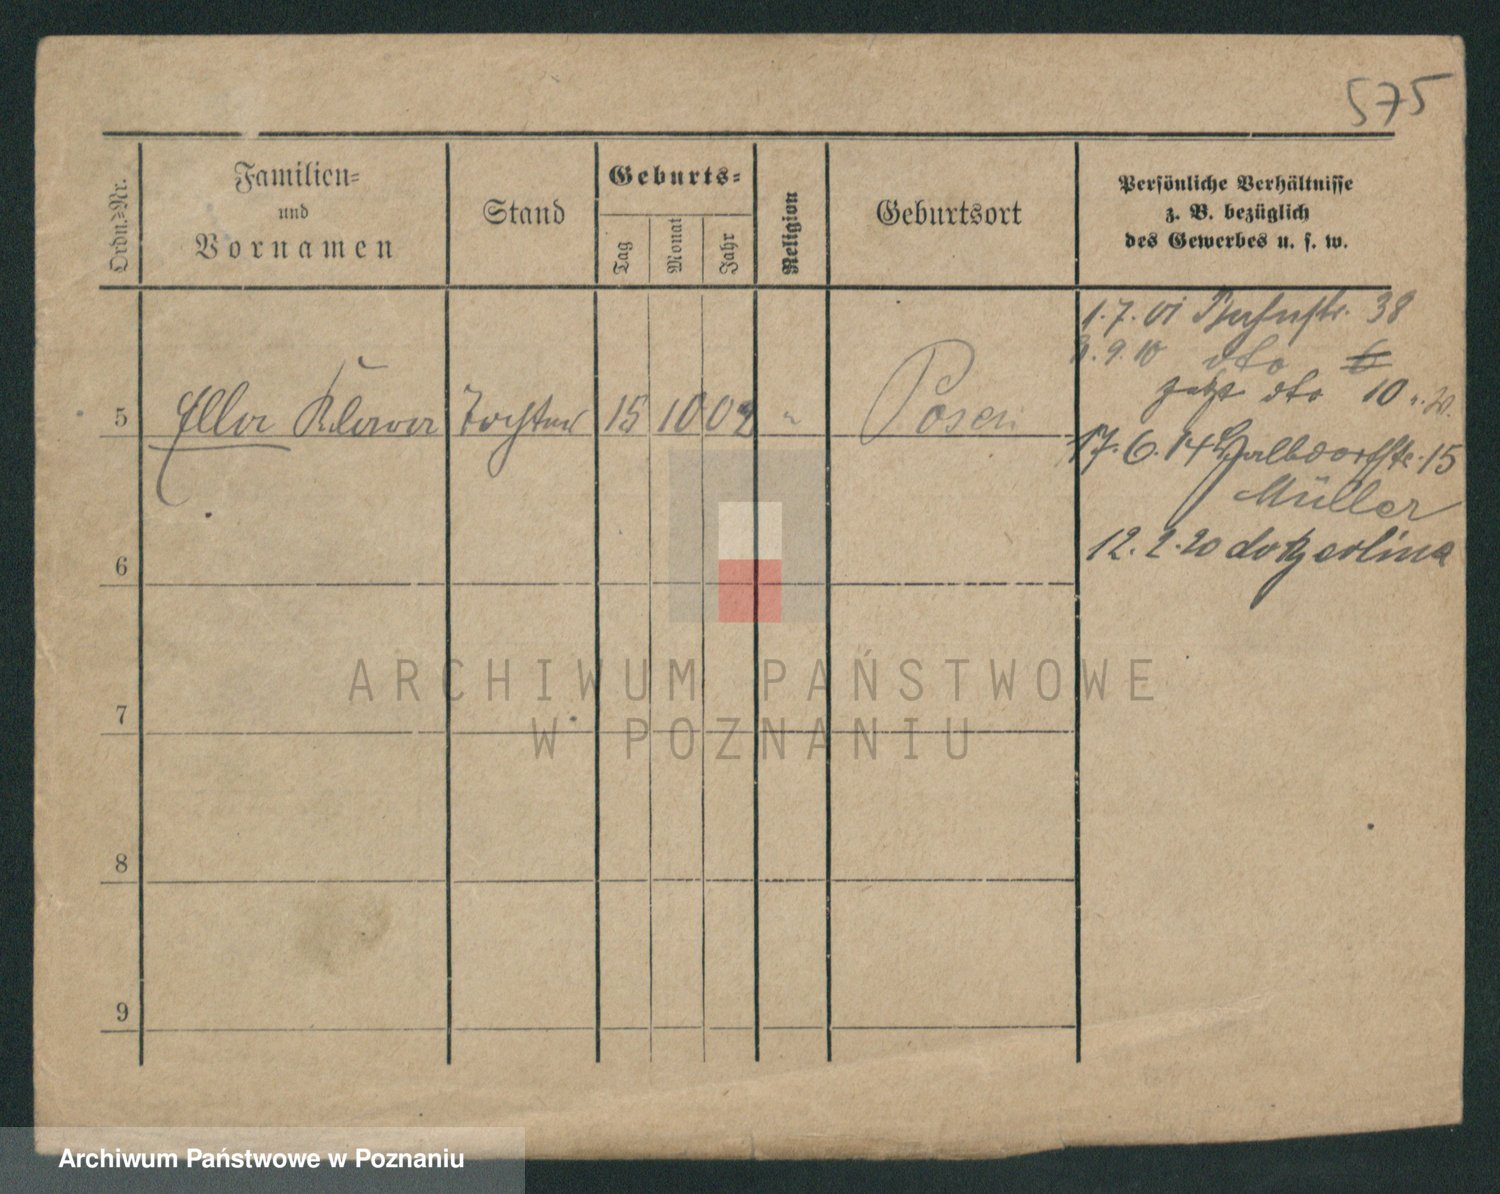 575
Ordn.=Nr.
Familien=
und
Vornamen
Stand
Geburts=
Tag
Monat
Jahr
Religion
Geburtsort
Persönliche Verhältnisse
z. B. bezüglich
des Gewerbes u. s. w.
5 Ella Klara Tochter 15 10 02 " Posen
1. 7. 01 38
9. 10 dto 6
jetzt dto 10 u. 20.
17. 6. 14 Halbdorfstr. 15
Müller
12. 2. 20 Berlina
6
7
8
9
ARCHIWUM PAŃSTWOWE
W POZNANIU
Archiwum Państwowe w Poznaniu